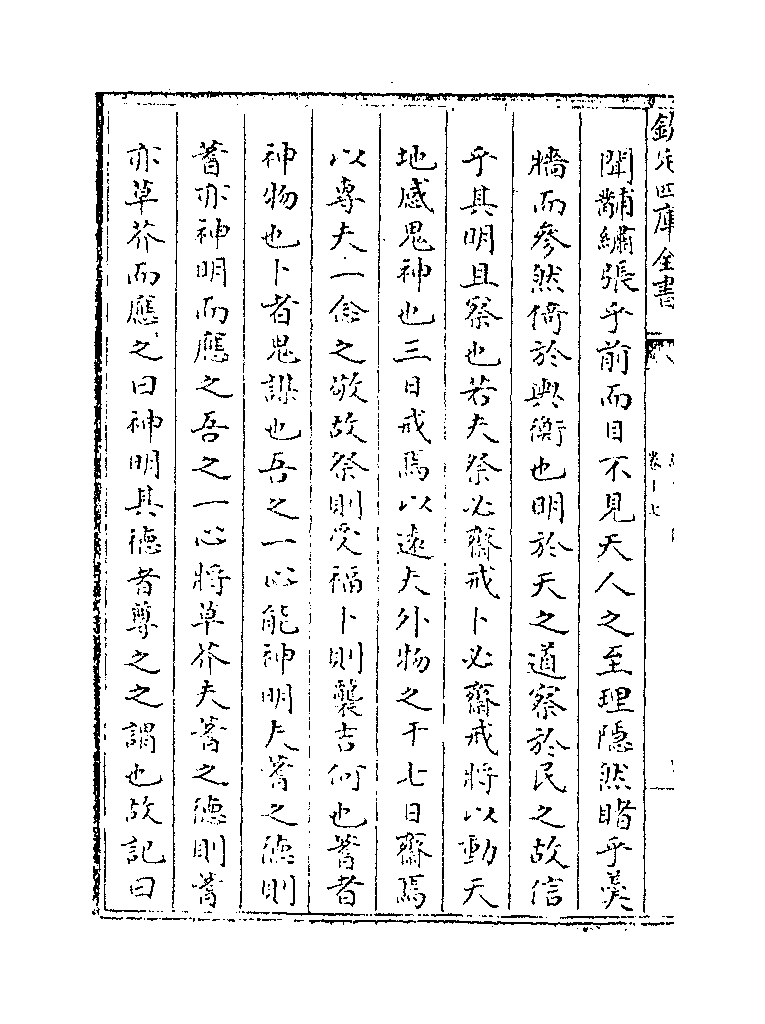 欽定四庫全書
卷十七
聞黼繡張乎前而目不見天人之至理隱然睹乎羮
牆而參然倚於輿衡也明於天之道察於民之故信
乎其明且察也若夫祭必齋戒卜必齋戒將以動天
地感鬼神也三日戒焉以遠夫外物之干七日齋焉
以專夫一念之敬故祭則受福卜則襲吉何也蓍者
神物也卜者鬼謀也吾之一心能神明夫蓍之德則
蓍亦神明而應之吾之一心將草芥夫蓍之德則蓍
亦草芥而應之曰神明其德者尊之之謂也故記曰